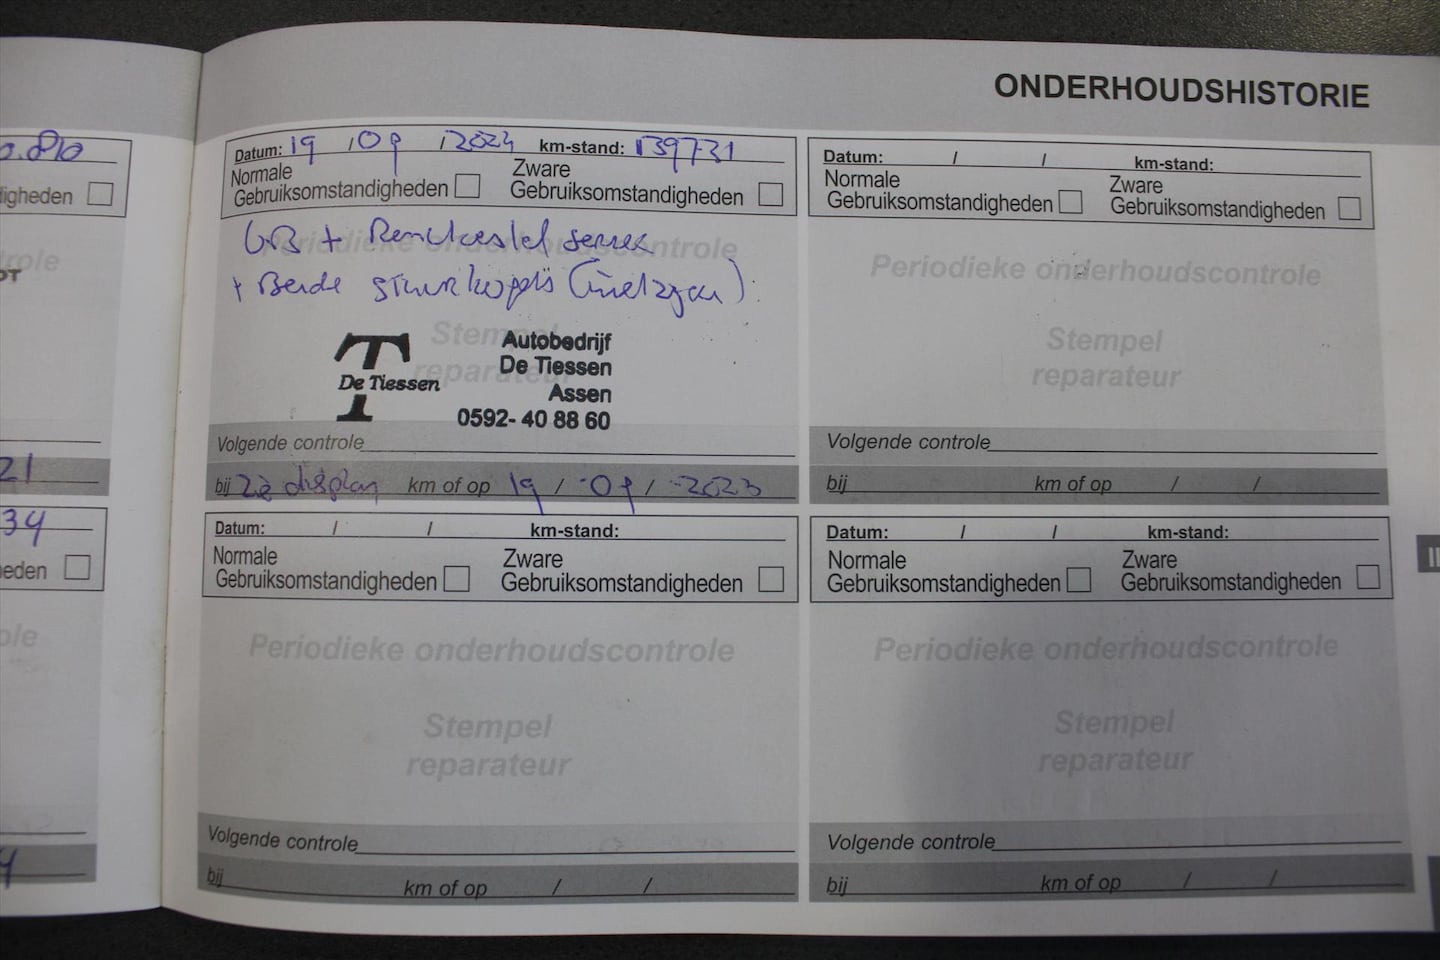 ONDERHOUDSHISTORIE
0.810
digheden
role
OT
21
34
heden
ole
4
Datum: 19 / 09 / 2024 km-stand: 139731
Normale
Gebruiksomstandigheden
Zware
Gebruiksomstandigheden
GB + Remvloeistof
Periodieke onderhoudscontrole
+ Beide stuurkogels
Stempel
reparateur
T
De Tiessen
Autobedrijf
De Tiessen
Assen
0592- 40 88 60
Volgende controle
bij Zie display km of op 19 / 09 / 2023
Datum: / / km-stand:
Normale
Gebruiksomstandigheden
Zware
Gebruiksomstandigheden
Periodieke onderhoudscontrole
Stempel
reparateur
Volgende controle
bij km of op / /
Datum: / / km-stand:
Normale
Gebruiksomstandigheden
Zware
Gebruiksomstandigheden
Periodieke onderhoudscontrole
Stempel
reparateur
Volgende controle
bij km of op / /
Datum: / / km-stand:
Normale
Gebruiksomstandigheden
Zware
Gebruiksomstandigheden
Periodieke onderhoudscontrole
Stempel
reparateur
Volgende controle
bij km of op / /